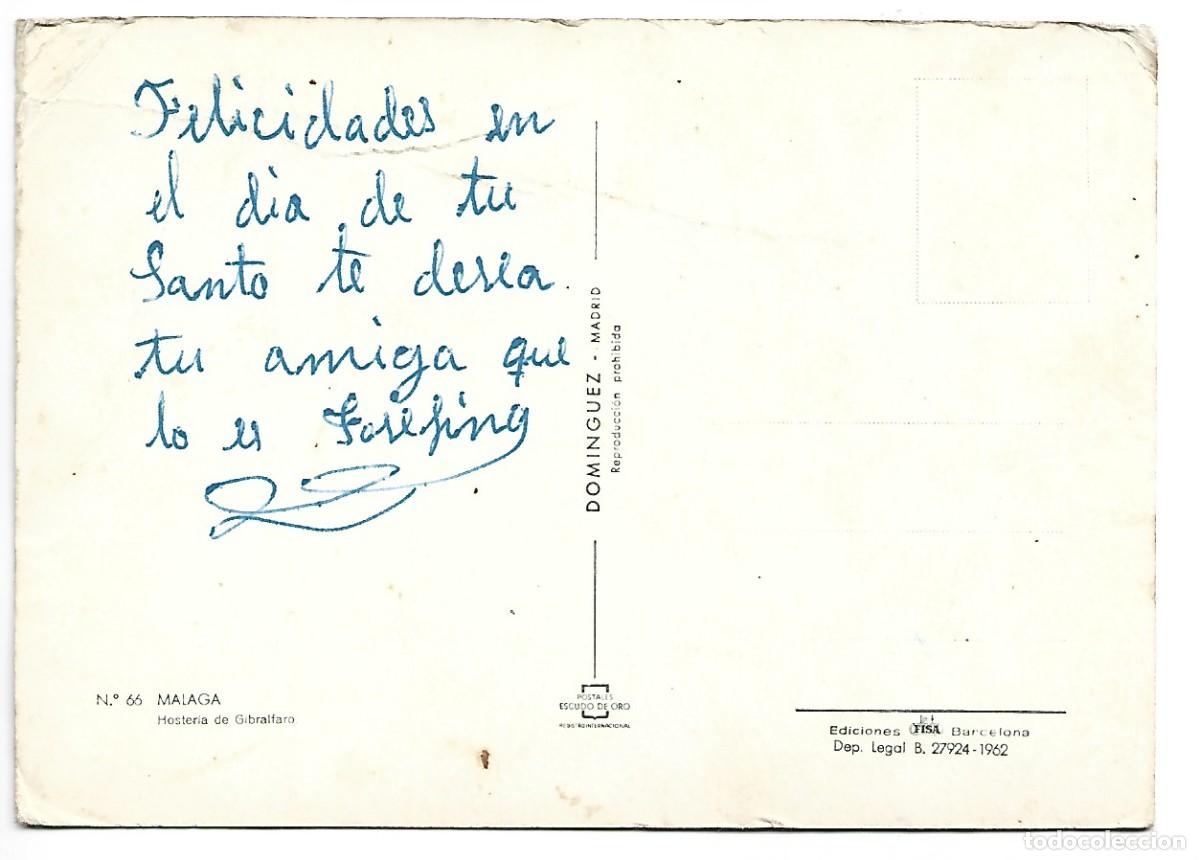 Felicidades en
el dia de tu
Santo te desea
tu amiga que
lo es Josefina
DOMINGUEZ - MADRID
Reproducción prohibida
N.º 66 MALAGA
Hostería de Gibralfaro
POSTALES
ESCUDO DE ORO
REGISTRO INTERNACIONAL
Ediciones FISA Barcelona
Dep. Legal B. 27924-1962
todocoleccion